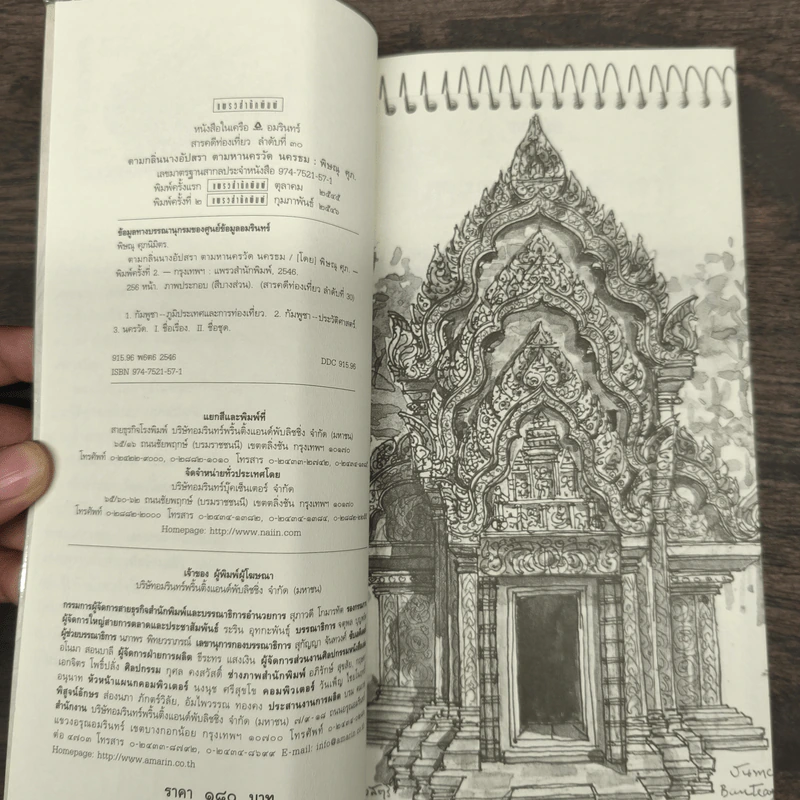 แพรวสำนักพิมพ์
หนังสือในเครือ อมรินทร์
สารคดีท่องเที่ยว ลำดับที่ ๓๐
ตามกลิ่นนางอัปสรา ตามหานครวัด นครธม : พิษณุ ศุภ.
เลขมาตรฐานสากลประจำหนังสือ 974-7521-57-1
พิมพ์ครั้งแรก แพรวสำนักพิมพ์ ตุลาคม ๒๕๔๕
พิมพ์ครั้งที่ ๒ แพรวสำนักพิมพ์ กุมภาพันธ์ ๒๕๔๖
ข้อมูลทางบรรณานุกรมของศูนย์ข้อมูลอมรินทร์
พิษณุ ศุภนิมิตร.
ตามกลิ่นนางอัปสรา ตามหานครวัด นครธม / [โดย] พิษณุ ศุภ. —
พิมพ์ครั้งที่ 2. — กรุงเทพฯ : แพรวสำนักพิมพ์, 2546.
256 หน้า. ภาพประกอบ (สีบางส่วน). (สารคดีท่องเที่ยว ลำดับที่ 30)
1. กัมพูชา--ภูมิประเทศและการท่องเที่ยว. 2. กัมพูชา--ประวัติศาสตร์.
3. นครวัด. I. ชื่อเรื่อง. II. ชื่อชุด.
915.96 พ665ต 2546 DDC 915.96
ISBN 974-7521-57-1
แยกสีและพิมพ์ที่
สายธุรกิจโรงพิมพ์ บริษัทอมรินทร์พริ้นติ้งแอนด์พับลิชชิ่ง จำกัด (มหาชน)
๖๕/๑๖ ถนนชัยพฤกษ์ (บรมราชชนนี) เขตตลิ่งชัน กรุงเทพฯ ๑๐๑๗๐
โทรศัพท์ ๐-๒๔๒๒-๙๐๐๐, ๐-๒๘๘๒-๑๐๑๐ โทรสาร ๐-๒๔๓๓-๒๗๔๒,
จัดจำหน่ายทั่วประเทศโดย
บริษัทอมรินทร์บุ๊คเซ็นเตอร์ จำกัด
๖๕/๖๐-๖๒ ถนนชัยพฤกษ์ (บรมราชชนนี) เขตตลิ่งชัน กรุงเทพฯ ๑๐๑๗๐
โทรศัพท์ ๐-๒๘๘๒-๒๐๐๐ โทรสาร ๐-๒๔๓๔-๑๓๘๒, ๐-๒๔๓๔-๑๓๘๔,
Homepage: http://www.naiin.com
เจ้าของ ผู้พิมพ์ผู้โฆษณา
บริษัทอมรินทร์พริ้นติ้งแอนด์พับลิชชิ่ง จำกัด (มหาชน)
กรรมการผู้จัดการสายธุรกิจสำนักพิมพ์และบรรณาธิการอำนวยการ สุภาวดี โกมารทัต
ผู้จัดการใหญ่สายการตลาดและประชาสัมพันธ์ ระริน อุทกะพันธุ์ บรรณาธิการ
ผู้ช่วยบรรณาธิการ นภาพร พิทยวราภรณ์ เลขานุการกองบรรณาธิการ สุกัญญา จันทวงศ์
อโนมา สอนบาลี ผู้จัดการฝ่ายการผลิต ธีระทร แสงเงิน ผู้จัดการส่วนงานศิลปกรรม
เอกจิตร โพธิ์ปลั่ง ศิลปกรรม กุศล คงสวัสดิ์ ช่างภาพสำนักพิมพ์ อภิรักษ์ สุขสัย,
อนุนาท หัวหน้าแผนกคอมพิวเตอร์ นงนุช ศรีสุขโข คอมพิวเตอร์ วันเพ็ญ
พิสูจน์อักษร ส่องนภา ภักตร์วิลัย, อัมไพวรรณ ทองคง ประสานงานการผลิต
สำนักงาน บริษัทอมรินทร์พริ้นติ้งแอนด์พับลิชชิ่ง จำกัด (มหาชน) ๗/๙-๑๘
แขวงอรุณอมรินทร์ เขตบางกอกน้อย กรุงเทพฯ ๑๐๗๐๐ โทรศัพท์
ต่อ ๔๗๐๓ โทรสาร ๐-๒๔๓๓-๘๗๙๒, ๐-๒๔๓๔-๘๖๙๙ E-mail:
Homepage: http://www.amarin.co.th
ราคา ๑๘๐ บาท